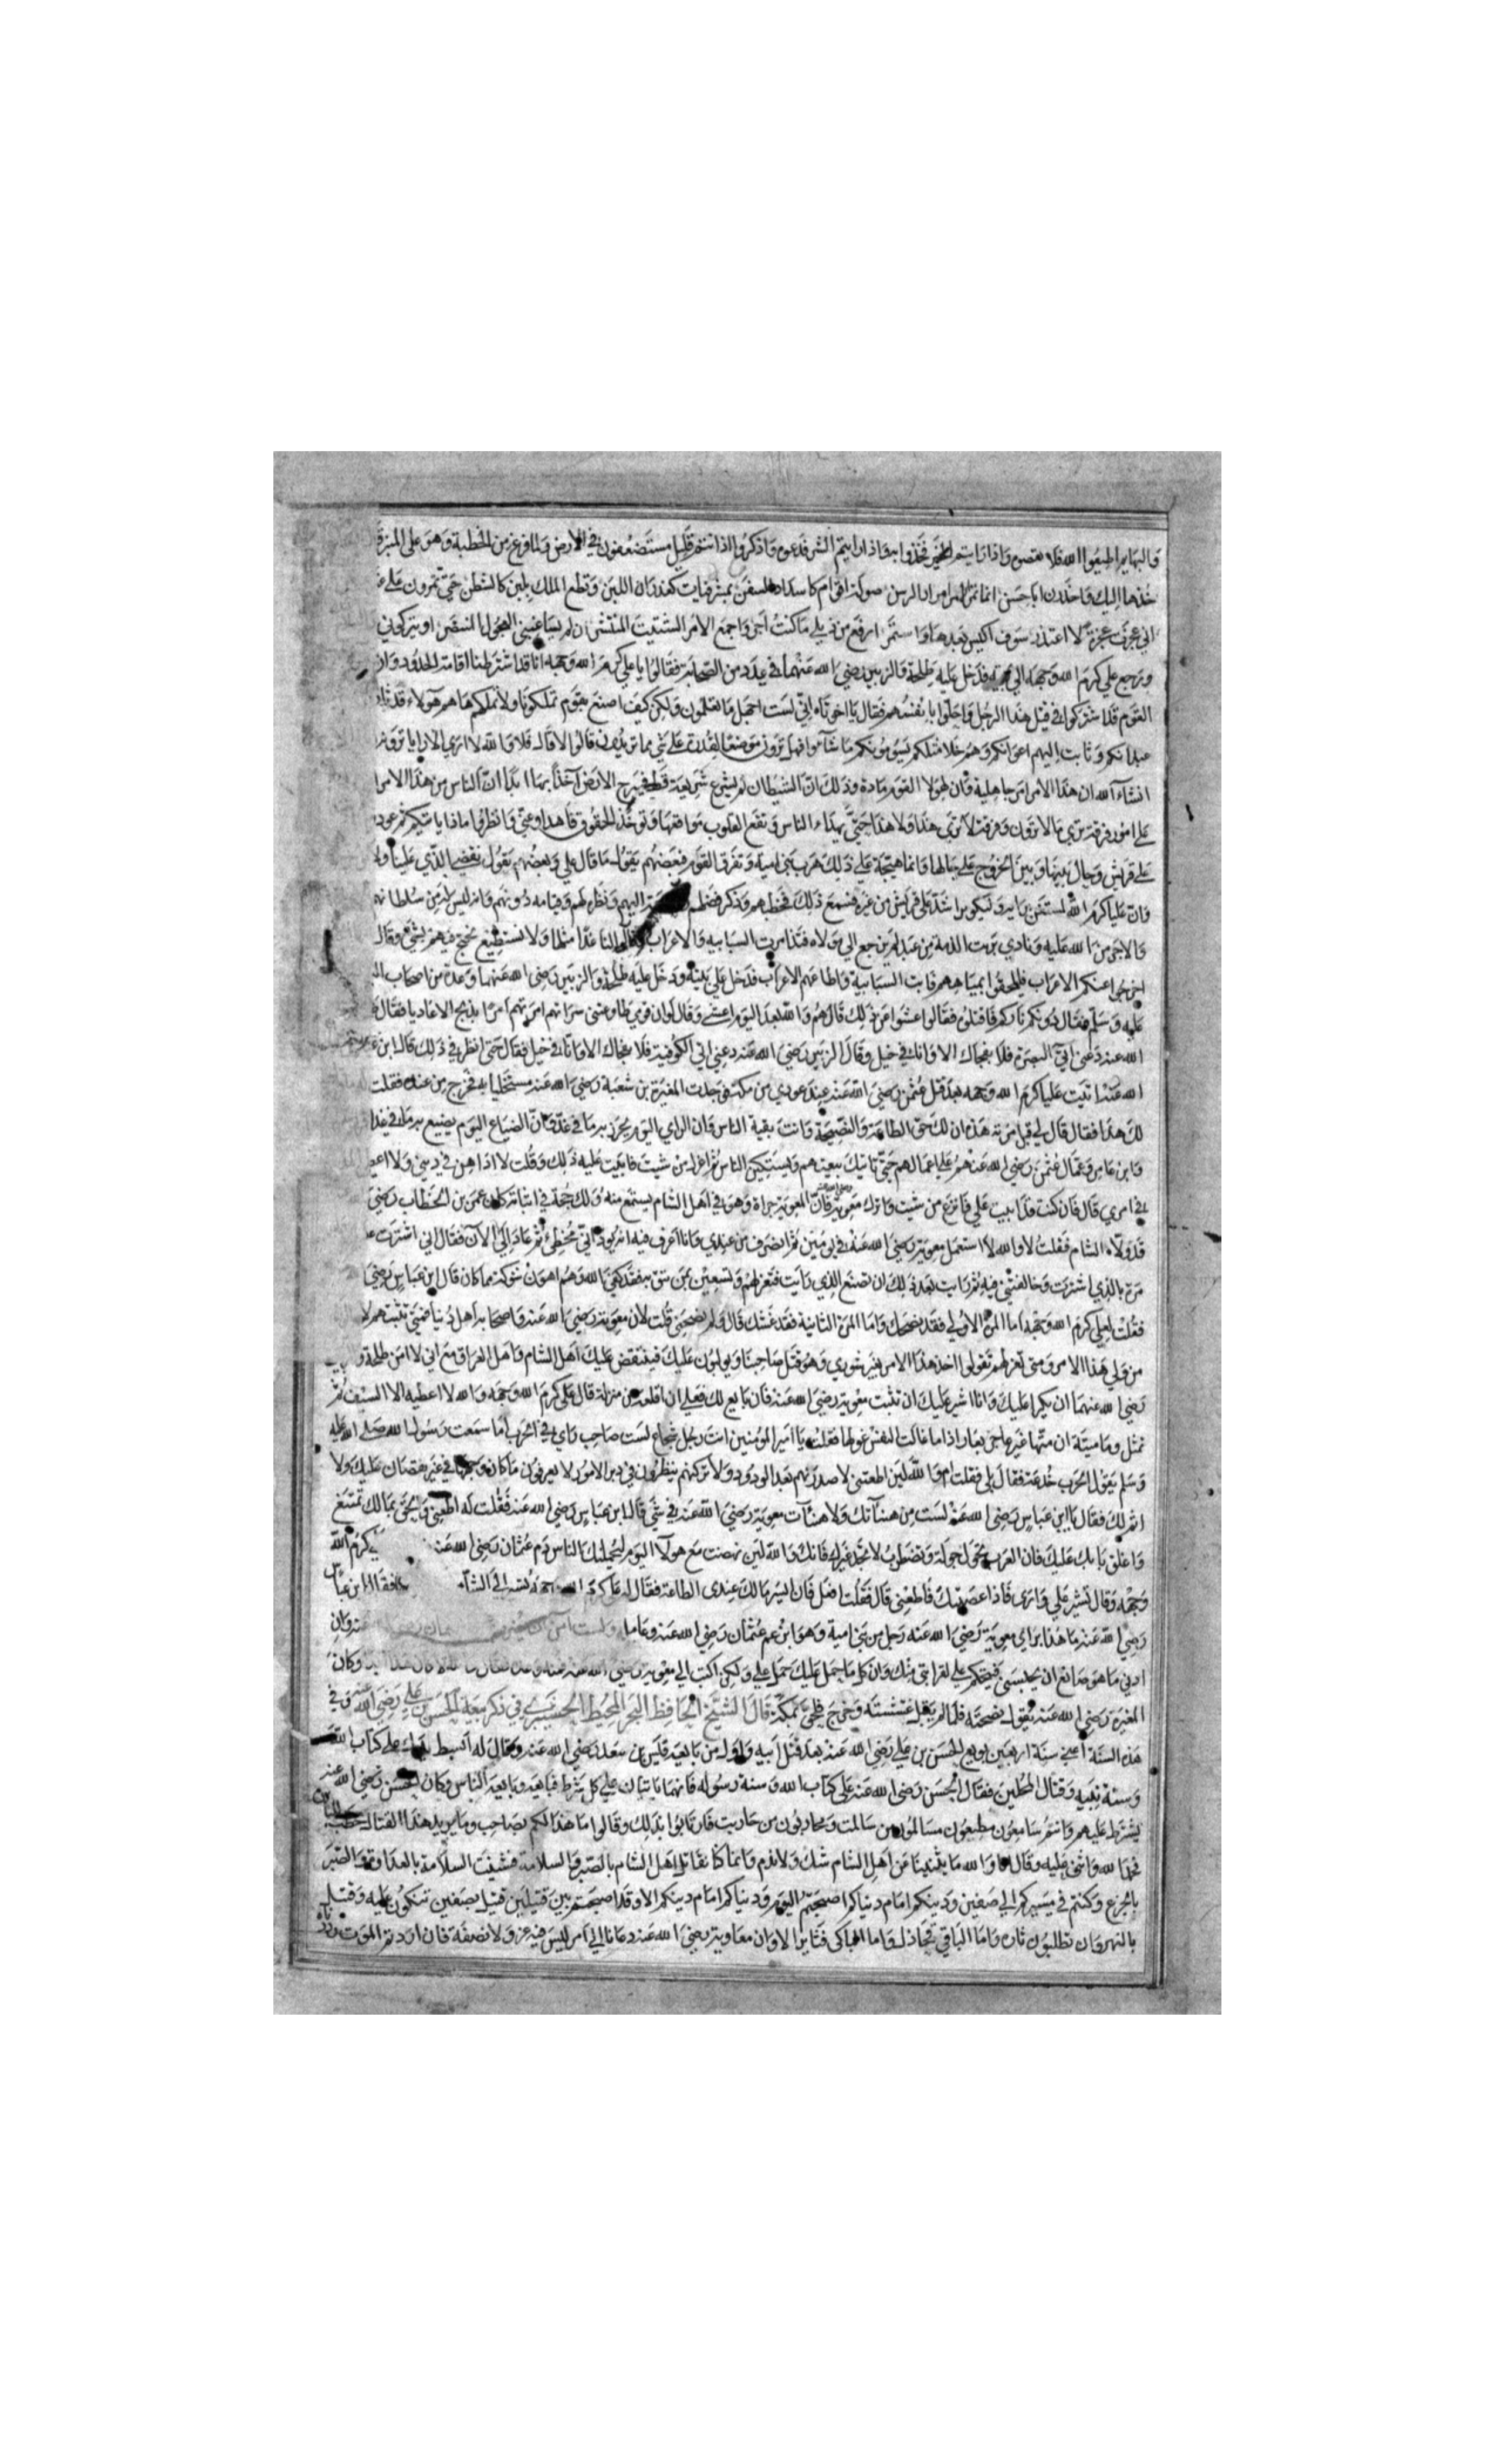 والبهايم اطيعوا الله فلا تعصوه واذا رايتم الخير فخذوا به واذا رايتم الشر فدعوه واذكروا اذ انتم قليل مستضعفون في الارض ولما فرغ من الخطبة وهو على المنبر
خذها اليك واحذرن ابا حسن انما نمر الامر امرار الرسن صولة اقوام كاسداد السفن بمشرفيات كغدران اللبن ونطعن الملك بلين كالشطن حتى تمرون على
اني عجزت عجزة لا اعتذر سوف اكيس بعدها واستمر ارفع من ذيلي ما كنت اجر واجمع الامر الشتيت المنتشر ان لم يشاغبني العجول المنتصر او يتركوني
ورجع علي كرم الله وجهه الى بيته فدخل عليه طلحة والزبير رضي الله عنهما في عدد من الصحابة فقالوا يا علي كرم الله وجهه انا قد اشترطنا اقامة الحدود وان
القوم قد اشتركوا في قتل هذا الرجل واحلوا بانفسهم فقال يا اخوتاه اني لست اجهل ما تعلمون ولكن كيف اصنع بقوم تملكونا ولا نملكهم ها هم هولاء قد ثار
عبدانكم وثابت اليهم اعرابكم وهم خلالكم يسومونكم ما شاءوا فهل ترون موضعا لقدرة على شي مما تريدون قالوا لا قال فلا والله لا ارى الا رايا ترونه
انشاء الله ان هذا الامر امر جاهلية وان لهولا القوم مادة وذلك ان الشيطان لم يشرع شريعة قط فيبرح الارض آخذا بها ابدا ان الناس من هذا الامر
على امور فرقة ترى ما لا ترون وفرقة لا ترى هذا ولا هذا حتى يهداء الناس وتقع القلوب مواقعها وتوخذ الحقوق فاهداوا عني وانظروا ماذا ياتيكم ثم عودوا
على قريش وحال بينها وبين الخروج على حالها وانما هيجه على ذلك هرب بني امية وتفرق القوم فبعضهم يقول ما قال علي وبعضهم يقول نقضي الذي علينا ولا
وان عليا كرم الله لمستغن برايه وليكونن اشد على قريش من غيره فسمع ذلك فخطبهم وذكر فضلهم وحاجته اليهم ونظره لهم وقيامه دونهم وانه ليس له من سلطانهم
والاجر من الله عليه ونادى برئت الذمة من عبد لم يرجع الى مولاه فتذامرت السبابيه والاعراب وقالوا لنا غدا مثلها ولا نستطيع نحتج فيهم بشيء وقال
اخرجوا عنكم الاعراب فليلحقوا بمياههم فابت السبابية واطاعهم الاعراب فدخل علي بيته ودخل عليه طلحة والزبير رضي الله عنهما وعدة من اصحاب النبي
عليه وسلم فقال دونكم ثاركم فاقتلوه فقالوا عشوا عن ذلك قال هم والله بعد اليوم اعشى وقال لو ان قومي طاوعتني سراتهم امرتهم امرا يديخ الاعاديا فقال
الله عنه دعني آتي البصرة فلا يفجاك الا وانا في خيل وقال الزبير رضي الله عنه دعني اتي الكوفة فلا يفجاك الا وانا في خيل فقال حتى انظر في ذلك قال ابن
الله عنه اتيت عليا كرم الله وجهه بعد قتل عثمن رضي الله عنه عند عودي من مكة فوجدت المغيرة بن شعبة رضي الله عنه مستخليا به فخرج من عنده فقلت
لك هذا فقال قال لي قبل مرته هذه ان لك حق الطاعة والنصيحة وانت بقية الناس وان الراي اليوم تحرز به ما في غد وان الضياع اليوم يضيع به ما في غد
وابن عامر وعمال عثمن رضي الله عنهم على اعمالهم حتى تاتيك بيعتهم وليسكن الناس ثم اعزل من شيت فابيت عليه ذلك وقلت لا اداهن في ديني ولا اعطي
في امري قال فان كنت قد ابيت علي فانزع من شيت واترك معوية رضي الله عنه فان المعوية جراة وهو في اهل الشام يستمع منه ولك حجة في اثباته كان عمر بن الخطاب رضي
قد ولاه الشام فقلت لا والله لا استعمل معوية رضي الله عنه في يومين ثم انصرف من عندي وانا اعرف فيه انه يود اني مخطئ ثم عاد الي الآن فقال اني اشرت عليك
مرة بالذي اشرت وخالفتني فيه ثم رايت بعد ذلك ان تصنع الذي رايت فتعزلهم وتستعين بمن تثق به فقد كفى الله وهم اهون شوكة مما كان قال ابن عباس رضي
فقلت لعلي كرم الله وجهه اما المرة الاولى فقد نصحك واما المرة الثانية فقد غشك قال ولم نصحني قلت لان معوية رضي الله عنه واصحابه اهل دنيا فمتى تثبتهم لا
من ولي هذا الامر ومتى تعزلهم تقولوا اخذ هذا الامر بغير شورى وهو قتل صاحبنا ويولبون عليك فينتقض عليك اهل الشام واهل العراق مع اني لا امن طلحة
رضي الله عنهما ان يكرا عليك وانا اشير عليك ان تثبت معوية رضي الله عنه فان بايع لك فعلي ان اقلعه من منزلة قال علي كرم الله وجهه والله لا اعطيه الا السيف ثم
تمثل وما ميتة ان متها غير عاجز بعار اذا ما غالت النفس غولها فقلت يا امير المومنين انت رجل شجاع لست صاحب راي في الحرب اما سمعت رسول الله صلى الله عليه
وسلم يقول الحرب خدعة فقال بلى فقلت ام والله لين اطعتني لاصدرنهم بعد الورود ولاتركنهم ينظرون في دبر الامور لا يعرفون ما كان وجهها في غير نقصان عليك ولا
اثم لك فقال يا ابن عباس رضي الله عنه لست من هنآتك ولا هنآت معوية رضي الله عنه في شي قال ابن عباس رضي الله عنه فقلت له اطعني والحق بمالك بينبع
واغلق بابك عليك فان العرب تجول جولة وتضطرب لا تجد غيرك فانك والله لين نهضت مع هولا اليوم ليحملنك الناس دم عثمان رضي الله عنه كرم الله
وجهه وقال تشير علي وارى فاذا عصيتك فاطعني قال فقلت افعل فان ايسر مالك عندي الطاعة فقال له علي كرم الله وجهه الى الشام فقال ابن عباس
رضي الله عنه ما هذا براي معوية رضي الله عنه رجل من بني امية وهو ابن عم عثمان رضي الله عنه وعامله ولست آمن وان
ادنى ما هو صانع ان يحبسني فيتحكم علي لقرابتي منك وان كل ما حمل عليك حمل علي ولكن اكتب الى معوية وكان
المغيرة رضي الله عنه يقول نصحته فلما لم يقبل غششته وخرج فلحق بمكة قال الشيخ الحافظ البحر المحيط الحسن بن علي رضي الله عنه وفي
هذه السنة اعني سنة اربعين بويع للحسن بن علي رضي الله عنه بعد قتل ابيه واول من بايعه قيس بن سعد رضي الله عنه وقال له ابسط يدك على كتاب الله
وسنة نبيه وقتال المحلين فقال الحسن رضي الله عنه على كتاب الله وسنة رسوله فانهما ياتيان على كل شرط فبايعه وبايعه الناس وكان الحسن رضي الله عنه
يشترط عليهم وانتم سامعون مطيعون مسالمون من سالمت ومحاربون من حاربت فارتابوا بذلك وقالوا ما هذا لكم بصاحب وما يريد هذا القتال
فحمد الله واثنى عليه وقال انا والله ما يثنينا عن اهل الشام شك ولا ندم وانما كنا نقاتل اهل الشام بالصبر والسلامة فشيبت السلامة بالعداوة والصبر
بالجزع وكنتم في مسيركم الى صفين ودينكم امام دنياكم اصبحتم اليوم ودنياكم امام دينكم الا وقد اصبحتم بين قتيلين قتيل بصفين تبكون عليه وقتيل
بالنهروان تطلبون ثاره واما الباقي فخاذل واما الباكي فثاير الا وان معاوية رضي الله عنه دعانا الى امر ليس فيه عز ولا نصفة فان اردتم الموت رددناه